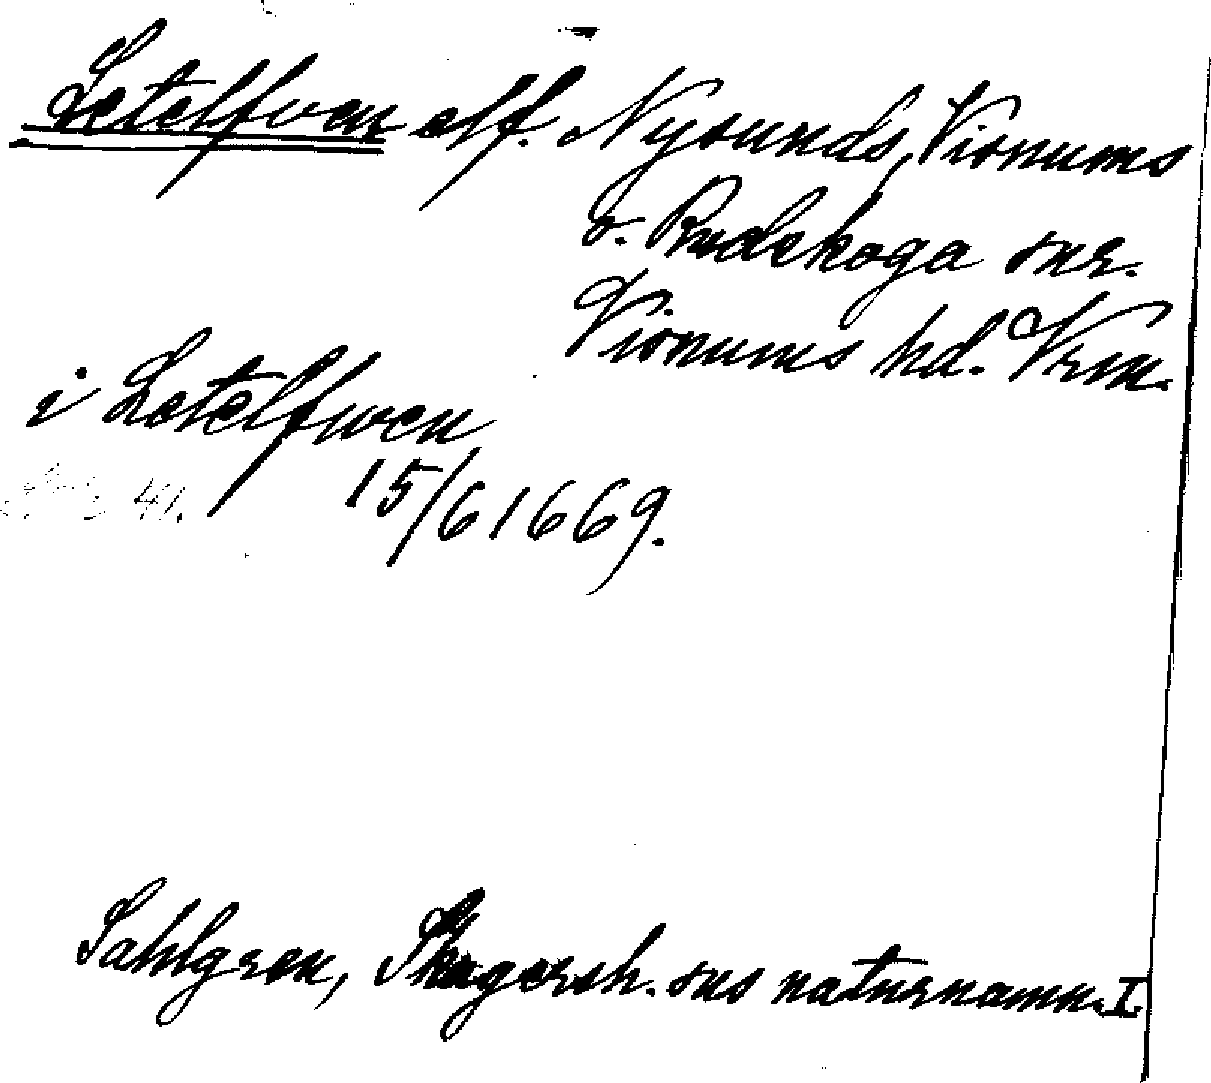 Letelfwen elf. Nysunds, Visnums
o. Rudskoga snr.
Visnums hd. Vrm.
i Letelfwen
15/6 1669.
Sahlgren, Skagersh. sns naturnamn. I